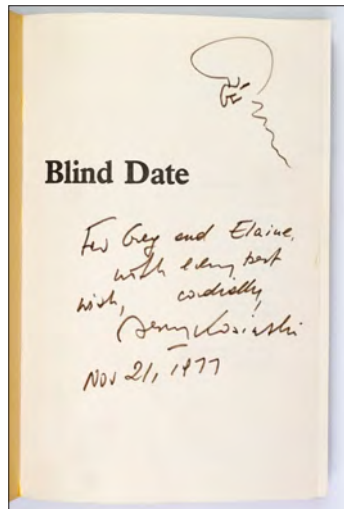 Blind Date
For Greg and Elaine,
with every best
wish, cordially,
Jerzy Kosinski
Nov 21, 1977